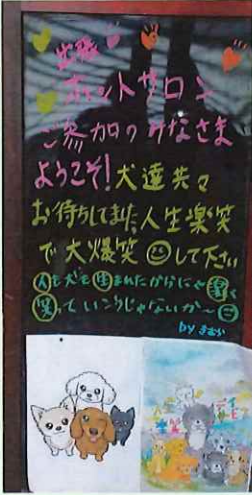 出張
ホットサロン
ご参加のみなさま
ようこそ!犬達共々
お待ちしてました人生楽笑
で大爆笑☺して下さい
人も犬も生まれたからにゃ
笑っていこうじゃないか〜
by きむら
人生